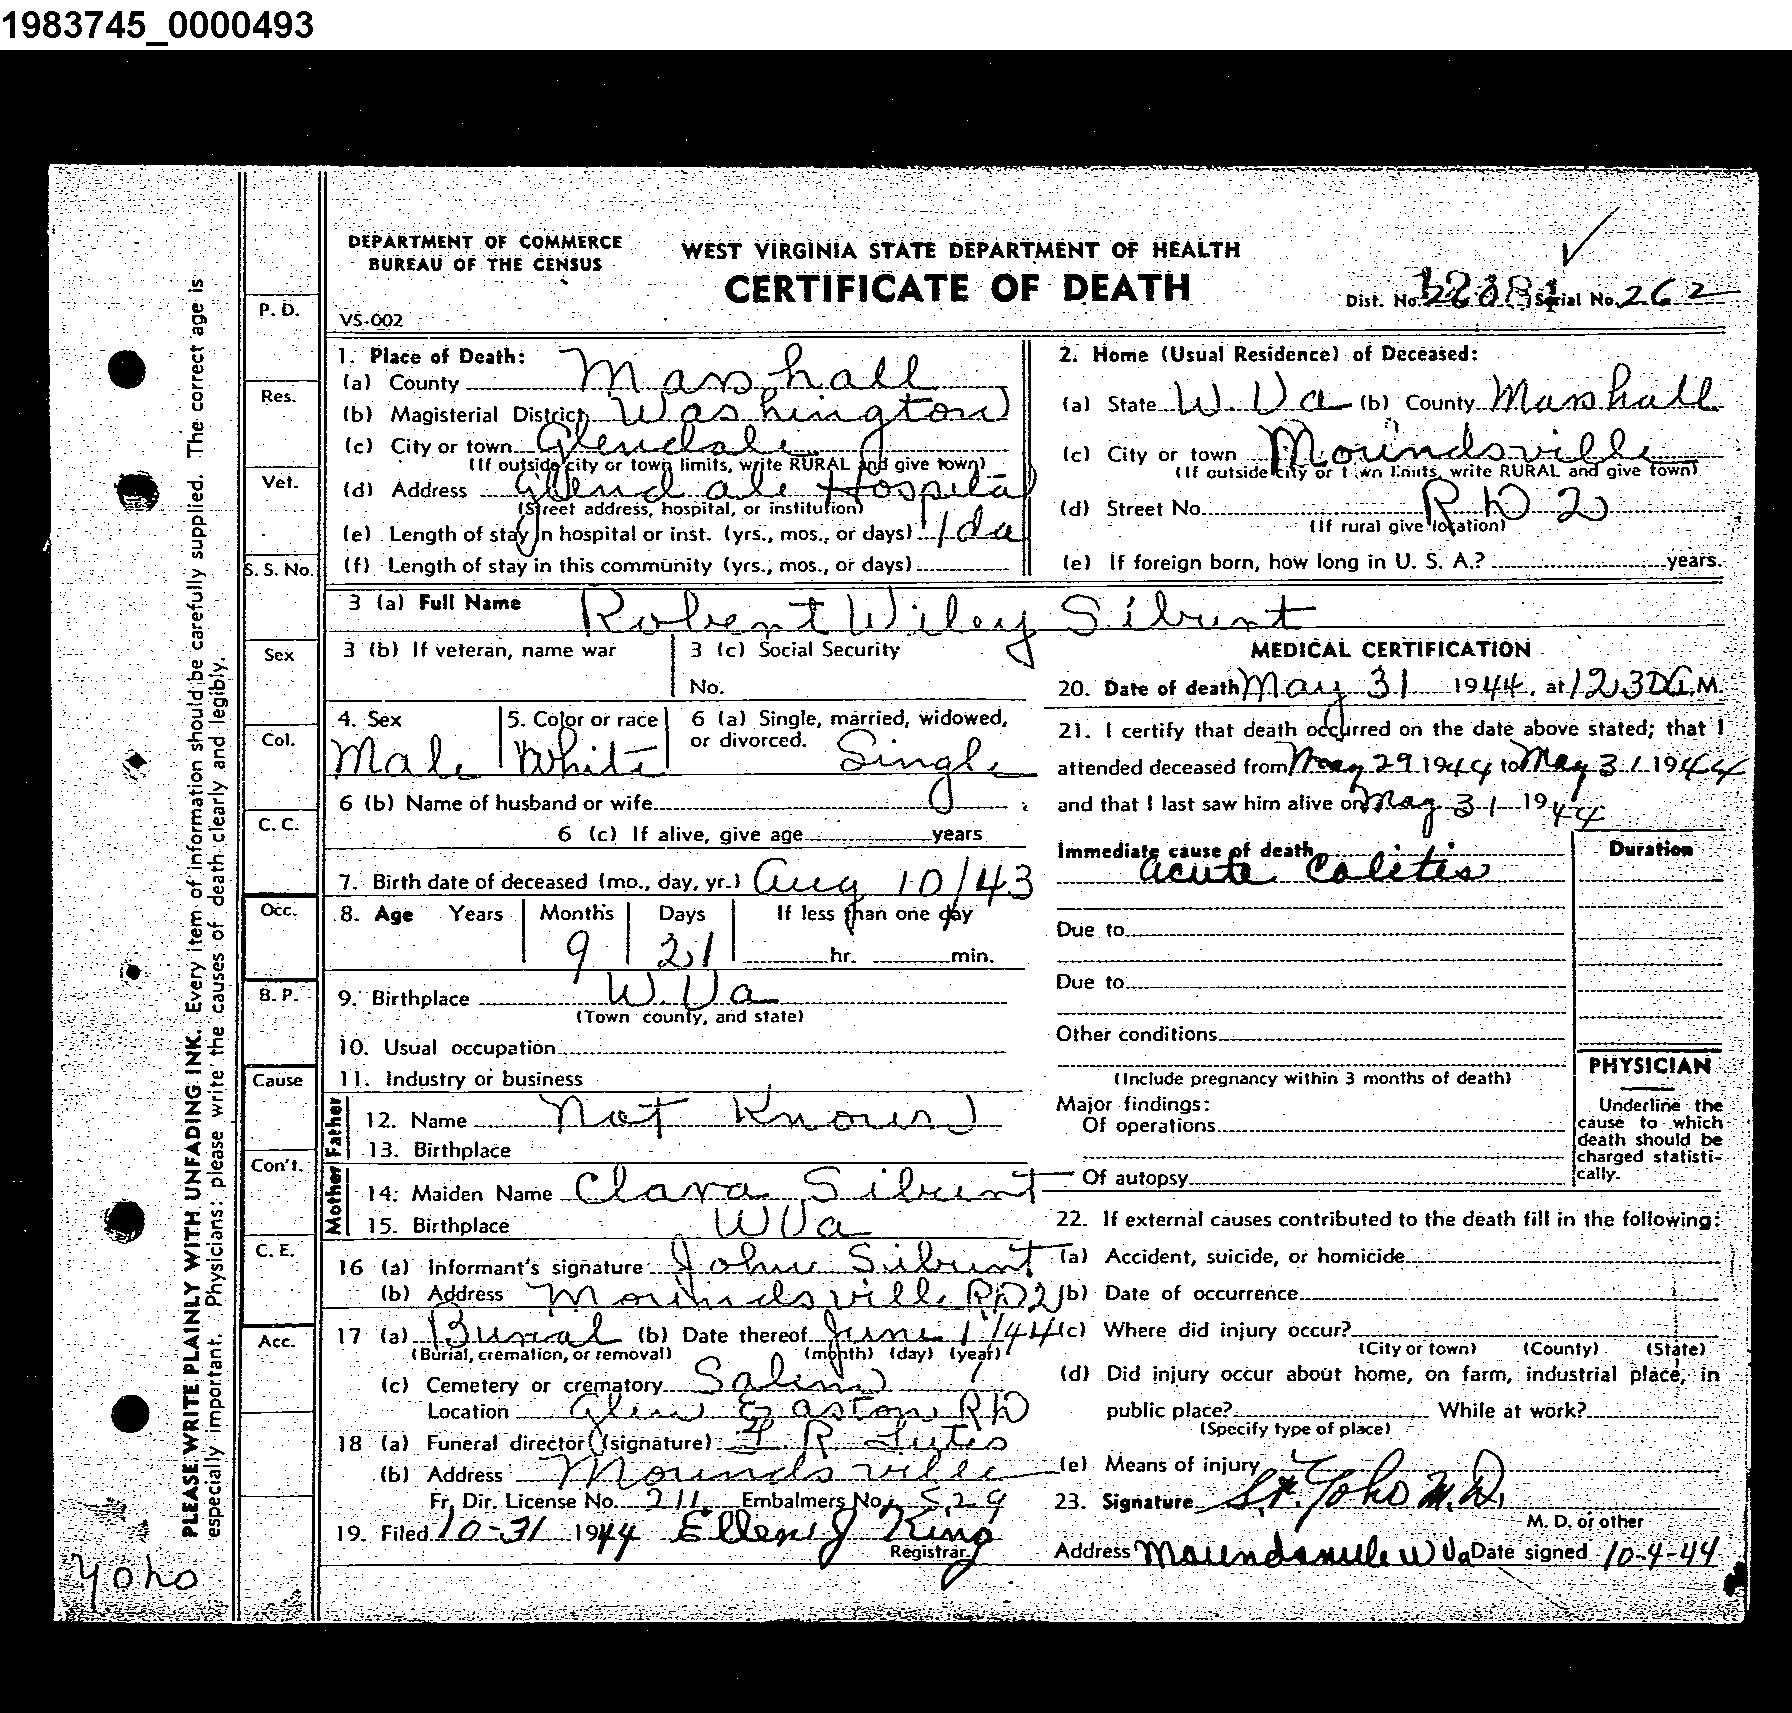 1983745_0000493
DEPARTMENT OF COMMERCE
BUREAU OF THE CENSUS
WEST VIRGINIA STATE DEPARTMENT OF HEALTH
CERTIFICATE OF DEATH
VS-002
Dist. No. Serial No. 262
1. Place of Death:
(a) County Marshall
(b) Magisterial District Washington
(c) City or town Glendale
(If outside city or town limits, write RURAL and give town)
(d) Address Glendale Hospital
(Street address, hospital, or institution)
(e) Length of stay in hospital or inst. (yrs., mos., or days) 1 da
(f) Length of stay in this community (yrs., mos., or days)
2. Home (Usual Residence) of Deceased:
(a) State W. Va (b) County Marshall
(c) City or town Moundsville
(If outside city or town limits, write RURAL and give town)
(d) Street No. R D 2
(If rural give location)
(e) If foreign born, how long in U. S. A.? years.
3 (a) Full Name Robert Wiley Siburt
3 (b) If veteran, name war
3 (c) Social Security
No.
4. Sex Male
5. Color or race White
6 (a) Single, married, widowed,
or divorced. Single
6 (b) Name of husband or wife
6 (c) If alive, give age years
7. Birth date of deceased (mo., day, yr.) Aug 10/43
8. Age Years Months Days If less than one day
9 21 hr. min.
9. Birthplace W. Va
(Town county, and state)
10. Usual occupation
11. Industry or business
Father
12. Name Not Known
13. Birthplace
Mother
14. Maiden Name Clara Siburt
15. Birthplace W Va
16 (a) Informant's signature John Siburt
(b) Address Moundsville RD 2
17 (a) Burial (b) Date thereof June 1/44
(Burial, cremation, or removal) (month) (day) (year)
(c) Cemetery or crematory Salem
Location Glen Easton RD
18 (a) Funeral director (signature) F R Lutes
(b) Address Moundsville
Fr. Dir. License No. 211 Embalmers No. 529
19. Filed 10-31 1944 Ellen J King
Registrar
MEDICAL CERTIFICATION
20. Date of death May 31 1944, at 1230 A.M.
21. I certify that death occurred on the date above stated; that I
attended deceased from May 29 1944 to May 31 1944
and that I last saw him alive on May 31 1944
Immediate cause of death Duration
acute Colitis
Due to
Due to
Other conditions
(Include pregnancy within 3 months of death)
Major findings:
Of operations
Of autopsy
PHYSICIAN
Underline the
cause to which
death should be
charged statisti-
cally.
22. If external causes contributed to the death fill in the following:
(a) Accident, suicide, or homicide
(b) Date of occurrence
(c) Where did injury occur?
(City or town) (County) (State)
(d) Did injury occur about home, on farm, industrial place, in
public place? While at work?
(Specify type of place)
(e) Means of injury
23. Signature Yoho M.D.
M. D. or other
Address Moundsville W Va Date signed 10-4-44
P. D.
Res.
Vet.
S. S. No.
Sex
Col.
C. C.
Occ.
B. P.
Cause
Con't.
C. E.
Acc.
PLEASE WRITE PLAINLY WITH UNFADING INK. Every item of information should be carefully supplied. The correct age is
especially important. Physicians: please write the causes of death clearly and legibly.
Yoho